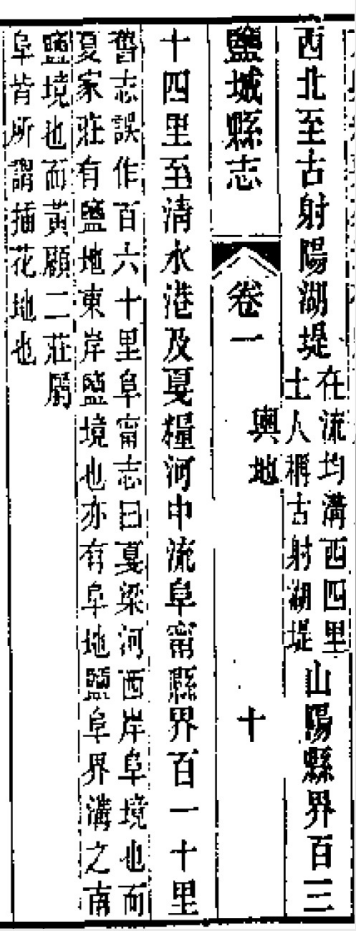 西北至古射陽湖堤
在流均溝西四里
土人稱古射湖堤
山陽縣界百三
鹽城縣志 卷一 輿地 十
十四里至清水港及夏糧河中流阜甯縣界百一十里
舊志誤作百六十里阜甯志曰夏梁河西岸阜境也而
夏家莊有鹽地東岸鹽境也亦有阜地鹽阜界溝之南
鹽境也而黃顧二莊屬
阜皆所謂插花地也